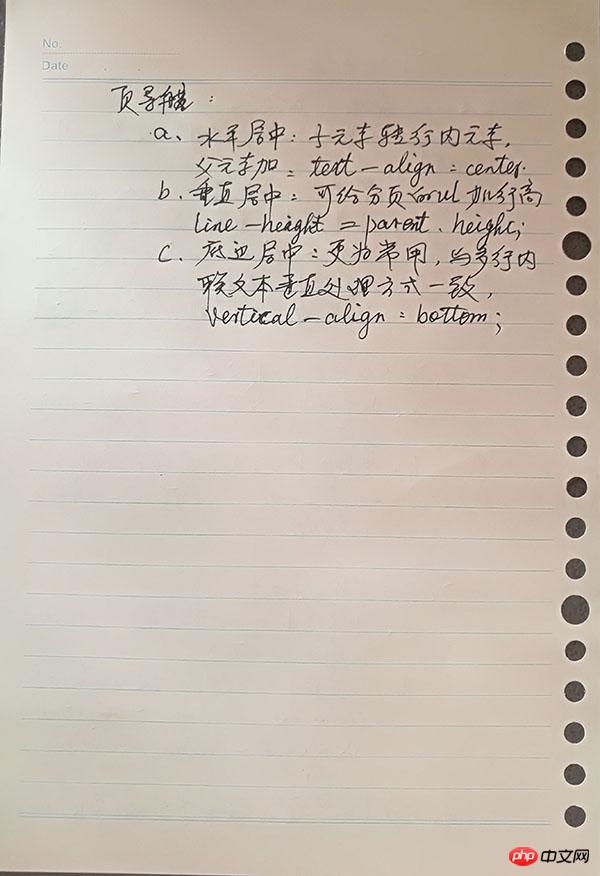 No.
Date
页导航:
a、水平居中:子元素转行内元素,
父元素加:text-align:center.
b、垂直居中:可给分页 or ul 加行高
line-height = parent.height;
c、底边居中:更为常用,与多行内
联文本垂直处理方式一致,
vertical-align:bottom;
php 中文网